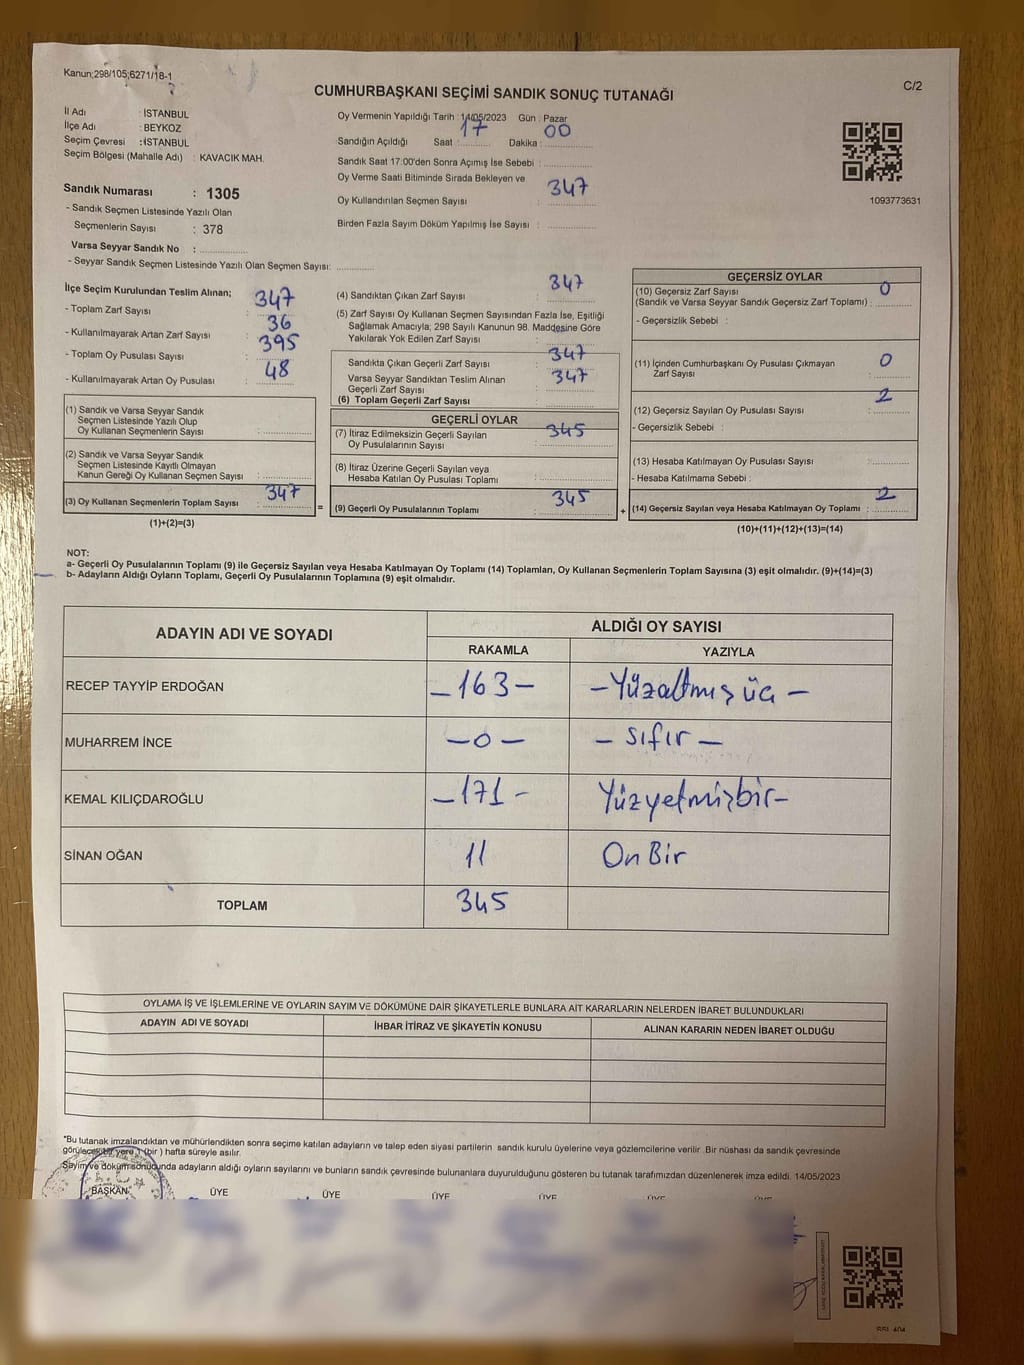 Kanun;298/105;6271/18-1
C/2
CUMHURBAŞKANI SEÇİMİ SANDIK SONUÇ TUTANAĞI
İl Adı : İSTANBUL
İlçe Adı : BEYKOZ
Seçim Çevresi :İSTANBUL
Seçim Bölgesi (Mahalle Adı) : KAVACIK MAH.
Sandık Numarası : 1305
- Sandık Seçmen Listesinde Yazılı Olan
Seçmenlerin Sayısı : 378
Varsa Seyyar Sandık No :
- Seyyar Sandık Seçmen Listesinde Yazılı Olan Seçmen Sayısı:
Oy Vermenin Yapıldığı Tarih : 14/05/2023 Gün : Pazar
Sandığın Açıldığı Saat : 17 Dakika : 00
Sandık Saat 17:00'den Sonra Açımış İse Sebebi :
Oy Verme Saati Bitiminde Sırada Bekleyen ve
Oy Kullandırılan Seçmen Sayısı : 347
Birden Fazla Sayım Döküm Yapılmış İse Sayısı :
1093773631
İlçe Seçim Kurulundan Teslim Alınan;
- Toplam Zarf Sayısı : 347
- Kullanılmayarak Artan Zarf Sayısı : 36
- Toplam Oy Pusulası Sayısı : 395
- Kullanılmayarak Artan Oy Pusulası : 48
(1) Sandık ve Varsa Seyyar Sandık
Seçmen Listesinde Yazılı Olup
Oy Kullanan Seçmenlerin Sayısı :
(2) Sandık ve Varsa Seyyar Sandık
Seçmen Listesinde Kayıtlı Olmayan
Kanun Gereği Oy Kullanan Seçmen Sayısı :
(3) Oy Kullanan Seçmenlerin Toplam Sayısı : 347
(1)+(2)=(3)
(4) Sandıktan Çıkan Zarf Sayısı : 347
(5) Zarf Sayısı Oy Kullanan Seçmen Sayısından Fazla İse, Eşitliği
Sağlamak Amacıyla; 298 Sayılı Kanunun 98. Maddesine Göre
Yakılarak Yok Edilen Zarf Sayısı :
Sandıkta Çıkan Geçerli Zarf Sayısı : 347
Varsa Seyyar Sandıktan Teslim Alınan
Geçerli Zarf Sayısı : 347
(6) Toplam Geçerli Zarf Sayısı :
GEÇERLİ OYLAR
(7) İtiraz Edilmeksizin Geçerli Sayılan
Oy Pusulalarının Sayısı : 345
(8) İtiraz Üzerine Geçerli Sayılan veya
Hesaba Katılan Oy Pusulaları Toplamı :
= (9) Geçerli Oy Pusulalarının Toplamı : 345
GEÇERSİZ OYLAR
(10) Geçersiz Zarf Sayısı 0
(Sandık ve Varsa Seyyar Sandık Geçersiz Zarf Toplamı) :
- Geçersizlik Sebebi :
(11) İçinden Cumhurbaşkanı Oy Pusulası Çıkmayan 0
Zarf Sayısı :
(12) Geçersiz Sayılan Oy Pusulası Sayısı : 2
- Geçersizlik Sebebi :
(13) Hesaba Katılmayan Oy Pusulası Sayısı :
- Hesaba Katılmama Sebebi :
+ (14) Geçersiz Sayılan veya Hesaba Katılmayan Oy Toplamı : 2
(10)+(11)+(12)+(13)=(14)
NOT:
a- Geçerli Oy Pusulalarının Toplamı (9) ile Geçersiz Sayılan veya Hesaba Katılmayan Oy Toplamı (14) Toplamları, Oy Kullanan Seçmenlerin Toplam Sayısına (3) eşit olmalıdır. (9)+(14)=(3)
b- Adayların Aldığı Oyların Toplamı, Geçerli Oy Pusulalarının Toplamına (9) eşit olmalıdır.
ADAYIN ADI VE SOYADI ALDIĞI OY SAYISI
RAKAMLA YAZIYLA
RECEP TAYYİP ERDOĞAN -163- -Yüzaltmışüç-
MUHARREM İNCE -0- -sıfır-
KEMAL KILIÇDAROĞLU -171- Yüzyetmişbir-
SİNAN OĞAN 11 On Bir
TOPLAM 345
OYLAMA İŞ VE İŞLEMLERİNE VE OYLARIN SAYIM VE DÖKÜMÜNE DAİR ŞİKAYETLERLE BUNLARA AİT KARARLARIN NELERDEN İBARET BULUNDUKLARI
ADAYIN ADI VE SOYADI İHBAR İTİRAZ VE ŞİKAYETİN KONUSU ALINAN KARARIN NEDEN İBARET OLDUĞU
"Bu tutanak imzalandıktan ve mühürlendikten sonra seçime katılan adayların ve talep eden siyasi partilerin sandık kurulu üyelerine veya gözlemcilerine verilir. Bir nüshası da sandık çevresinde
görülecek bir yere 1 (bir) hafta süreyle asılır.
Sayım ve döküm sonucunda adayların aldığı oyların sayılarını ve bunların sandık çevresinde bulunanlara duyurulduğunu gösteren bu tutanak tarafımızdan düzenlenerek imza edildi. 14/05/2023
BAŞKAN ÜYE ÜYE ÜYE ÜYE ÜYE ÜYE